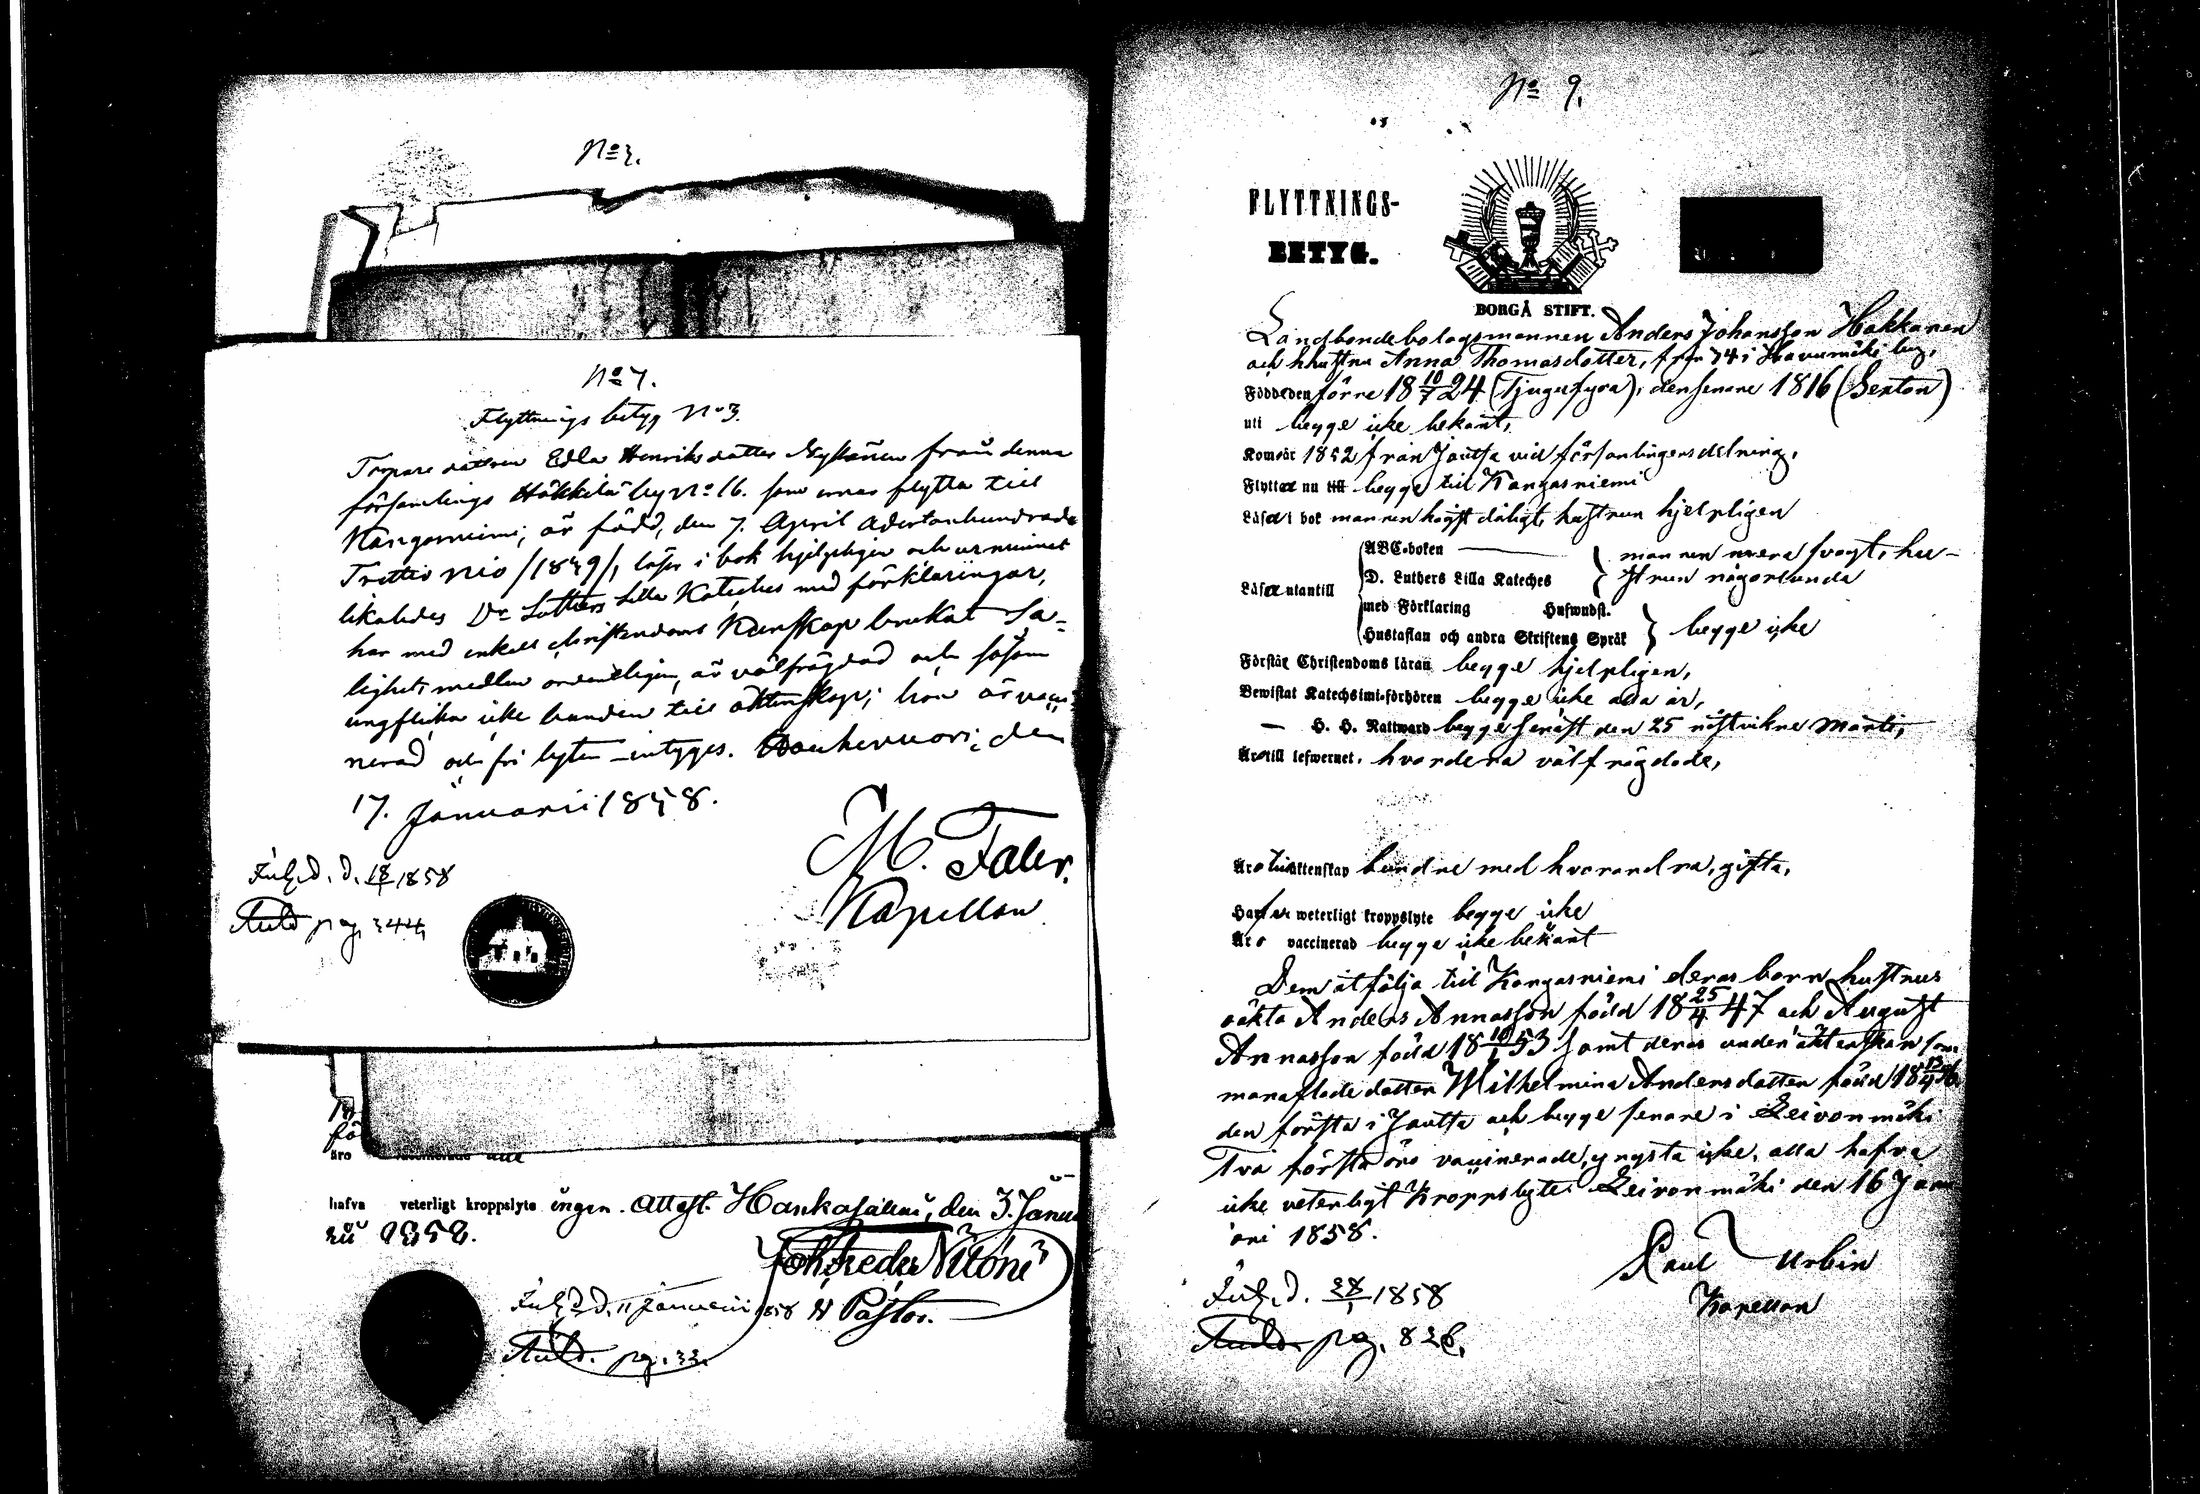 No 3.
No 7.
Flyttnings betyg No 3.
Torpare dottren Edla Henriksdotter Nykänen från denna
församlings Häkkilä by No 16. som ärnar flytta till
Kangasniemi, är född, den 7. April Adertonhundrade
Trettio nio /1839/, läser i bok hjelpligen och ur minnet
likaledes Dr Luthers Lilla Kateches med förklaringar,
har med enkel christendoms kunskap brukat Sa-
lighets medlen ordentligen, är välfrägdad och såsom
ungflicka icke bunden till äktenskap; hon är vacci-
nerad och fri lyten intygas. Rauhavuori, den
17. Januarii 1858.
M. Faler.
Kapellan
Inl. d. d. 18/1 1858
pag. 344
äro alle
hafva veterligt kroppslyte ingen. Attest. Hankasalmi, den 3. Janua
rii 1858.
Joh. Fredr.
Pastor.
Inl. d. 11 Januarii 1858
pg. 33.
No 9.
FLYTTNINGS-
BETYG.
BORGÅ STIFT.
Landbondebolagsmannen Anders Johansson Hokkanen
och hustru Anna Thomasdotter, från No 4 i Havumäki by,
Födde den förre 18 10/7 24 (Tjugufyra), den senare 1816 (Sexton)
uti begge icke bekant,
Kom år 1852 från Joutsa vid församlingens delning,
Flyttar nu till begge till Kangasniemi
Läsa i bok mannen högst dåligt, hustrun hjelpligen
ABC-boken
D. Luthers Lilla Kateches mannen svagt, hu-
strun någorlunda
Läsa utantill
med Förklaring Hufwudst.
Hustaflan och andra Skriftens Språk begge icke
Förstår Christendoms läran begge hjelpligen,
Bewistat Katechismi-förhören begge icke alla år,
— H. H. Nattward begge senast den 25 nästvikne Martii,
Äro till lefwernet, hvardera välfrägdade,
Äro till äktenskap bundne med hvarandra, gifta,
Hafva weterligt kroppslyte begge icke
Äro vaccinerad begge icke bekant
Dem åtfölja till Kangasniemi deras barn hustrus
oäkta Anders Annasson född 18 25/4 47 och August
Annasson född 18 10/1 53 samt deras under äktenskap sam-
manaflade dotter Wilhelmina Andersdotter född 18
den första i Joutsa och begge senare i Leivonmäki
Två första äro vaccinerade, yngsta icke, alla hafva
icke veterligt Kroppslyte. Leivonmäki den 16 Janu
ari 1858.
Paul Urbin
Kapellan
Inl. d. 28/1 1858
pag. 826.